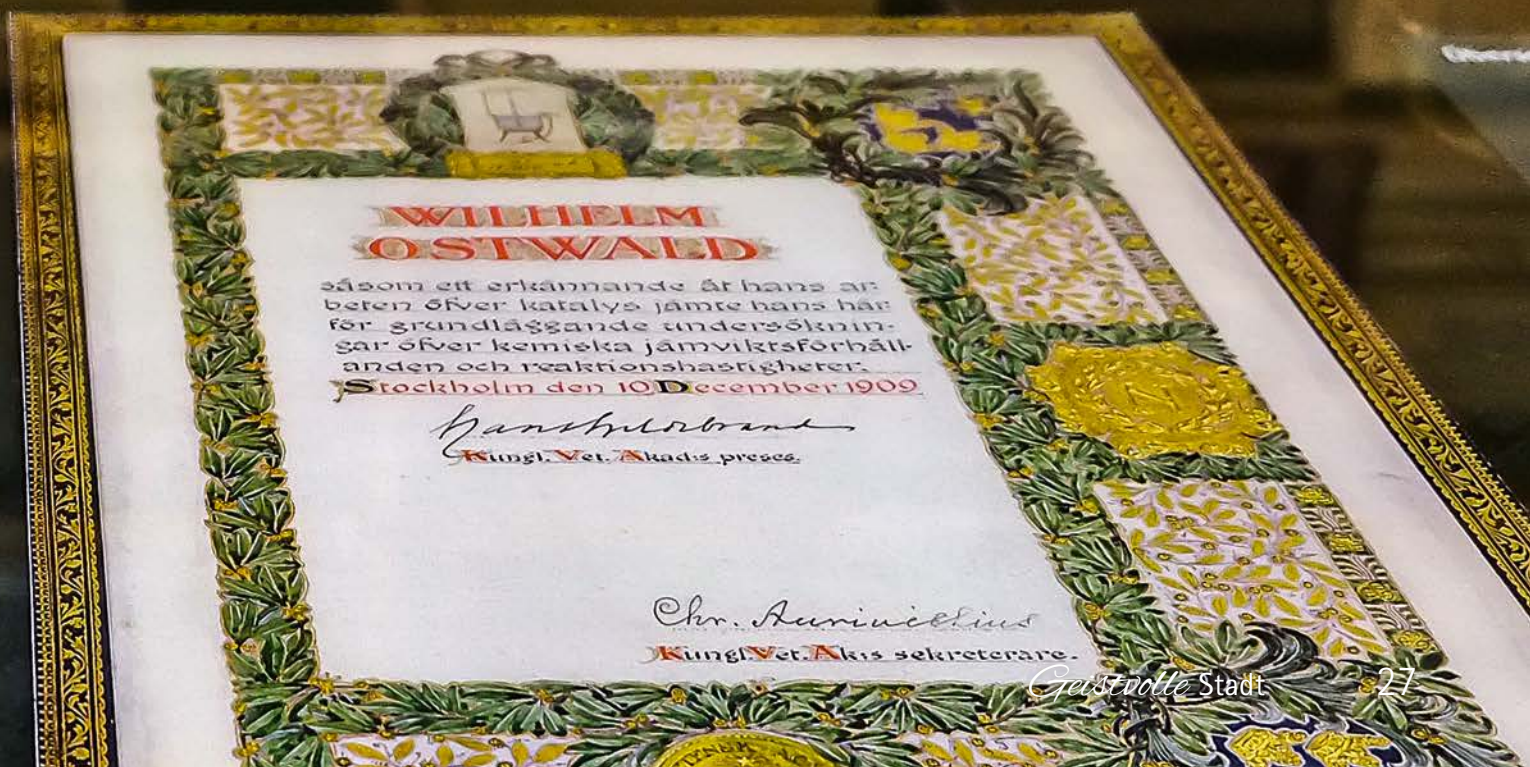 WILHELM
OSTWALD
såsom ett erkännande åt hans ar-
beten öfver katalys jämte hans här-
för grundläggande undersöknin-
gar öfver kemiska jämviktsförhåll-
anden och reaktionshastigheter.
Stockholm den 10 December 1909
Hans Hildebrand
Kungl. Vet. Akad:s preses.
Chr. Aurivillius
Kungl. Vet. Ak:s sekreterare.
Geistvolle Stadt 27